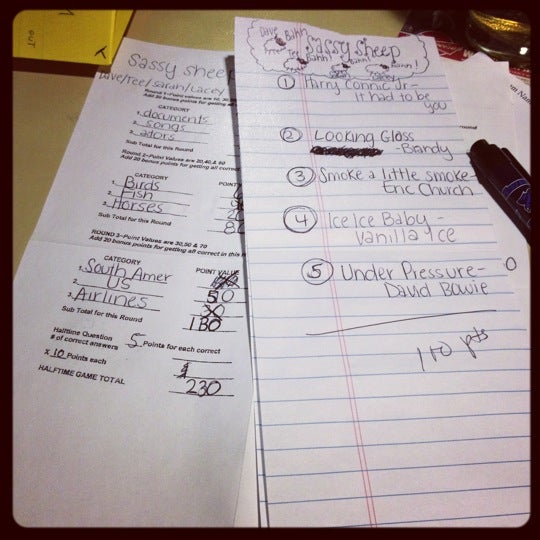 OUT
Sassy sheep
Dave/Tee/Sarah/Lacey
Round 1-Point values are 10, 30
Add 20 bonus points for getting all
CATEGORY
1. documents
2. songs
3. actors
Sub Total for this Round
Round 2-Point Values are 20,40,& 60
Add 20 bonus points for getting all correct
CATEGORY
POINT
1. Birds
2. Fish
3. Horses
Sub Total for this Round
80
ROUND 3-Point Values are 30,50 & 70
Add 20 bonus points for getting all correct in this
CATEGORY
POINT VALUE
1. South Amer
2. US
50
3. Airlines
Sub Total for this Round
130
Halftime Question
# of correct answers 5 Points for each correct
x 10 Points each
HALFTIME GAME TOTAL
230
Dave Bahh
Tee Bahh! Bahh! Bahh!
Sassy sheep
① Harry Connic Jr-
it had to be
you
② Looking Glass
-Brandy
③ Smoke a little smoke-
Eric Church
④ Ice Ice Baby -
Vanilla Ice
⑤ Under Pressure-
David Bowie
110 pts